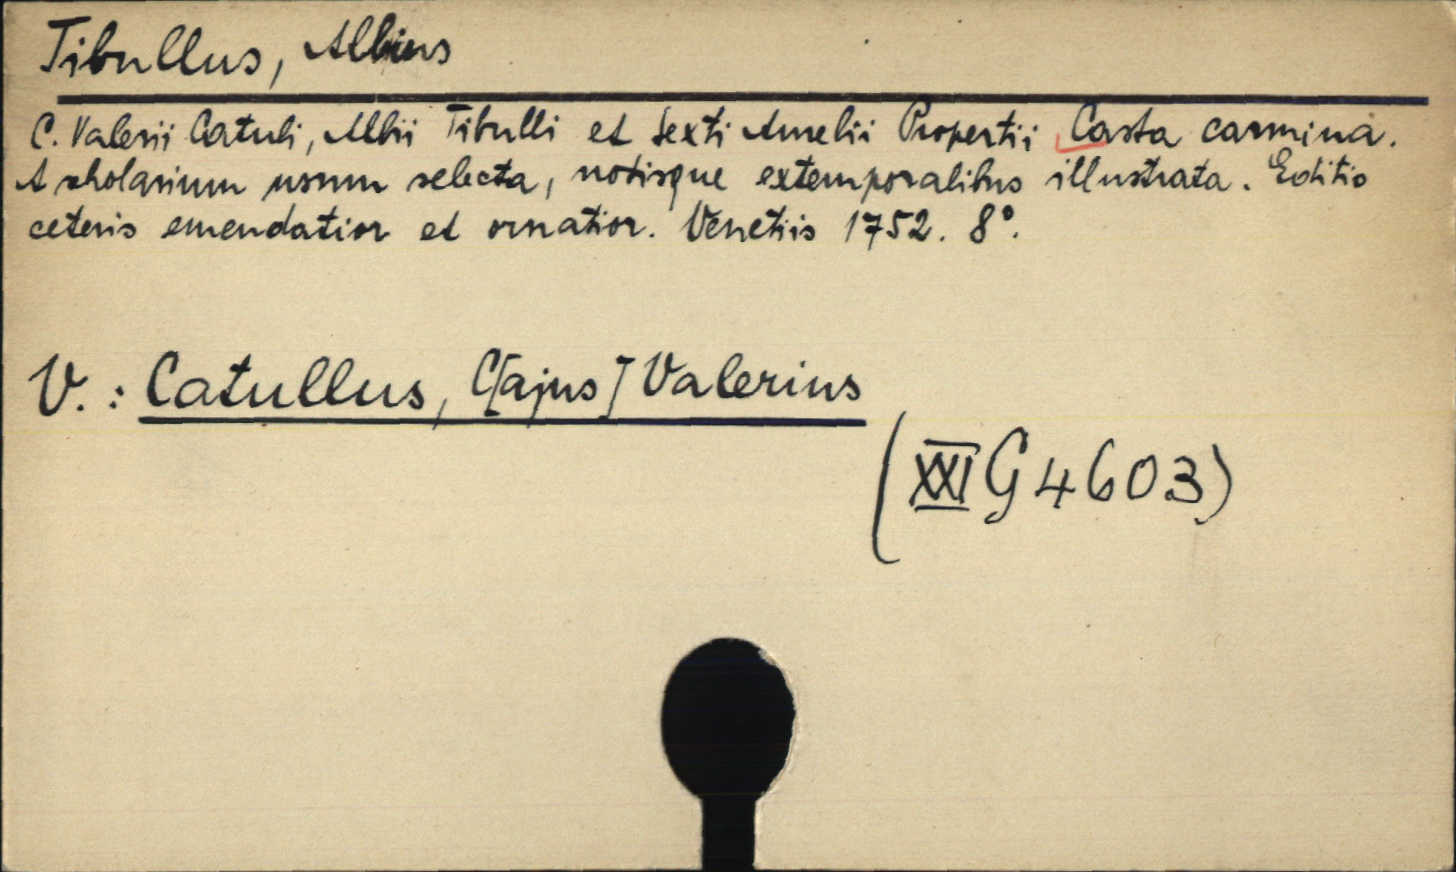 Tibullus, Albius
C. Valerii Catuli, Albii Tibulli et Sexti Aurelii Propertii Casta carmina.
A scholarium usum selecta, notisque extemporalibus illustrata. Editio
ceteris emendatior et ornatior. Venetiis 1752. 8°.
V.: Catullus, C[ajus] Valerius
(XXI G 4603)